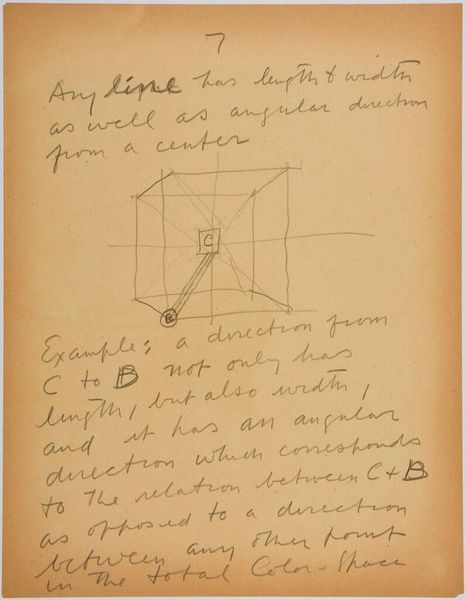 7
Any line has length & width
as well as angular direction
from a center
C
B
Example: a direction from
C to B not only has
length, but also width,
and it has an angular
direction which corresponds
to the relation between C + B
as opposed to a direction
between any other point
in the total Color-Space